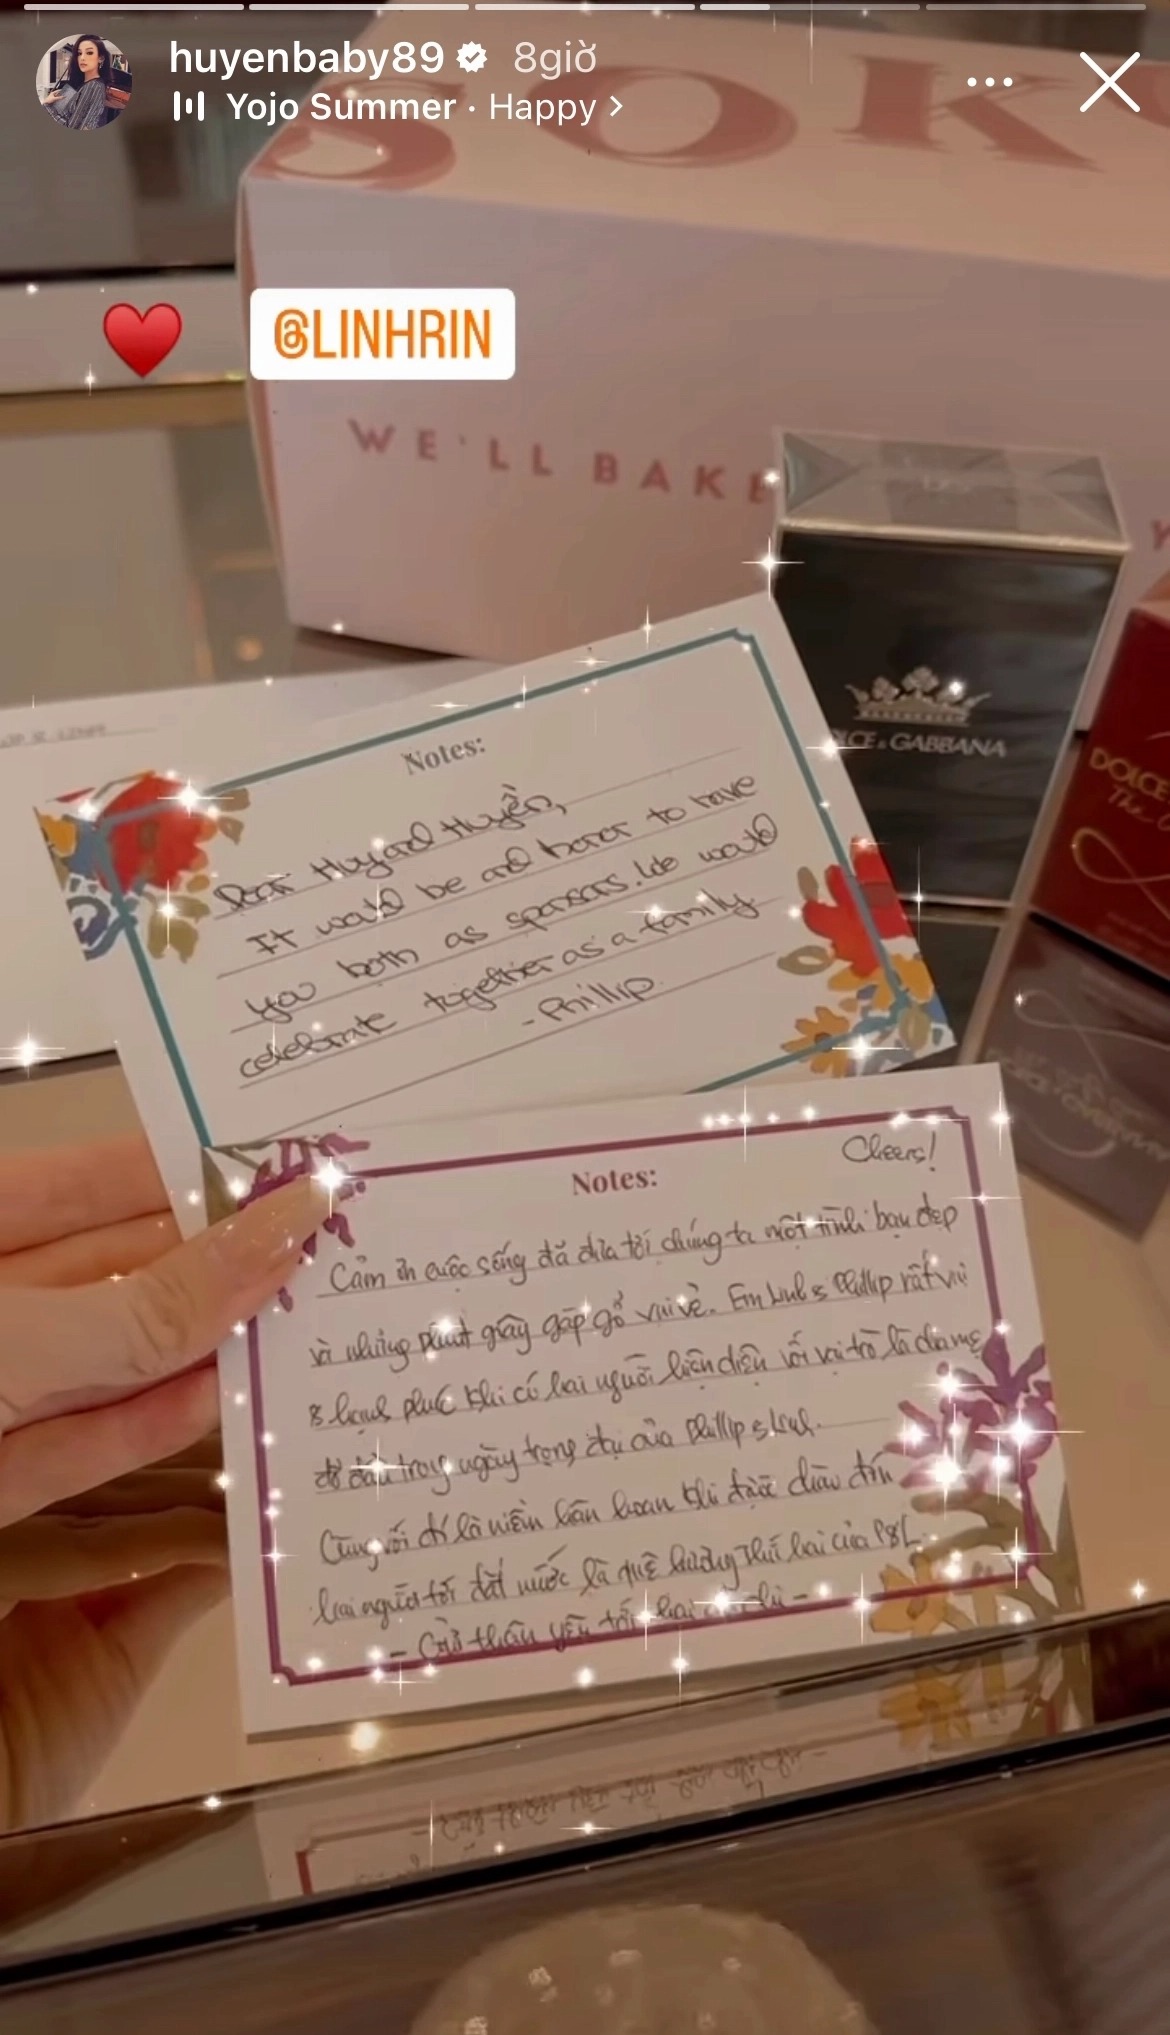 huyenbaby89 8giờ
Yojo Summer · Happy >
SOK
@LINHRIN
WE'LL BAKE
DOLCE & GABBANA
DOLCE
The
Notes:
Dear Huy and Huyền,
It would be and honor to have
you both as sponsors. We would
celebrate together as a family
- Phillip
Cheers!
Notes:
Cảm ơn cuộc sống đã đưa tới chúng ta một tình bạn đẹp
và những phút giây gặp gỡ vui vẻ. Em Linh & Phillip rất vui
& hạnh phúc khi có hai người hiện diện với vai trò là cha mẹ
đỡ đầu trong ngày trọng đại của Phillip & Linh.
Cùng với đó là niềm hân hoan khi được chào đón
hai người tới đất nước là quê hương thứ hai của P&L.
- Gửi thân yêu tới hai anh chị -